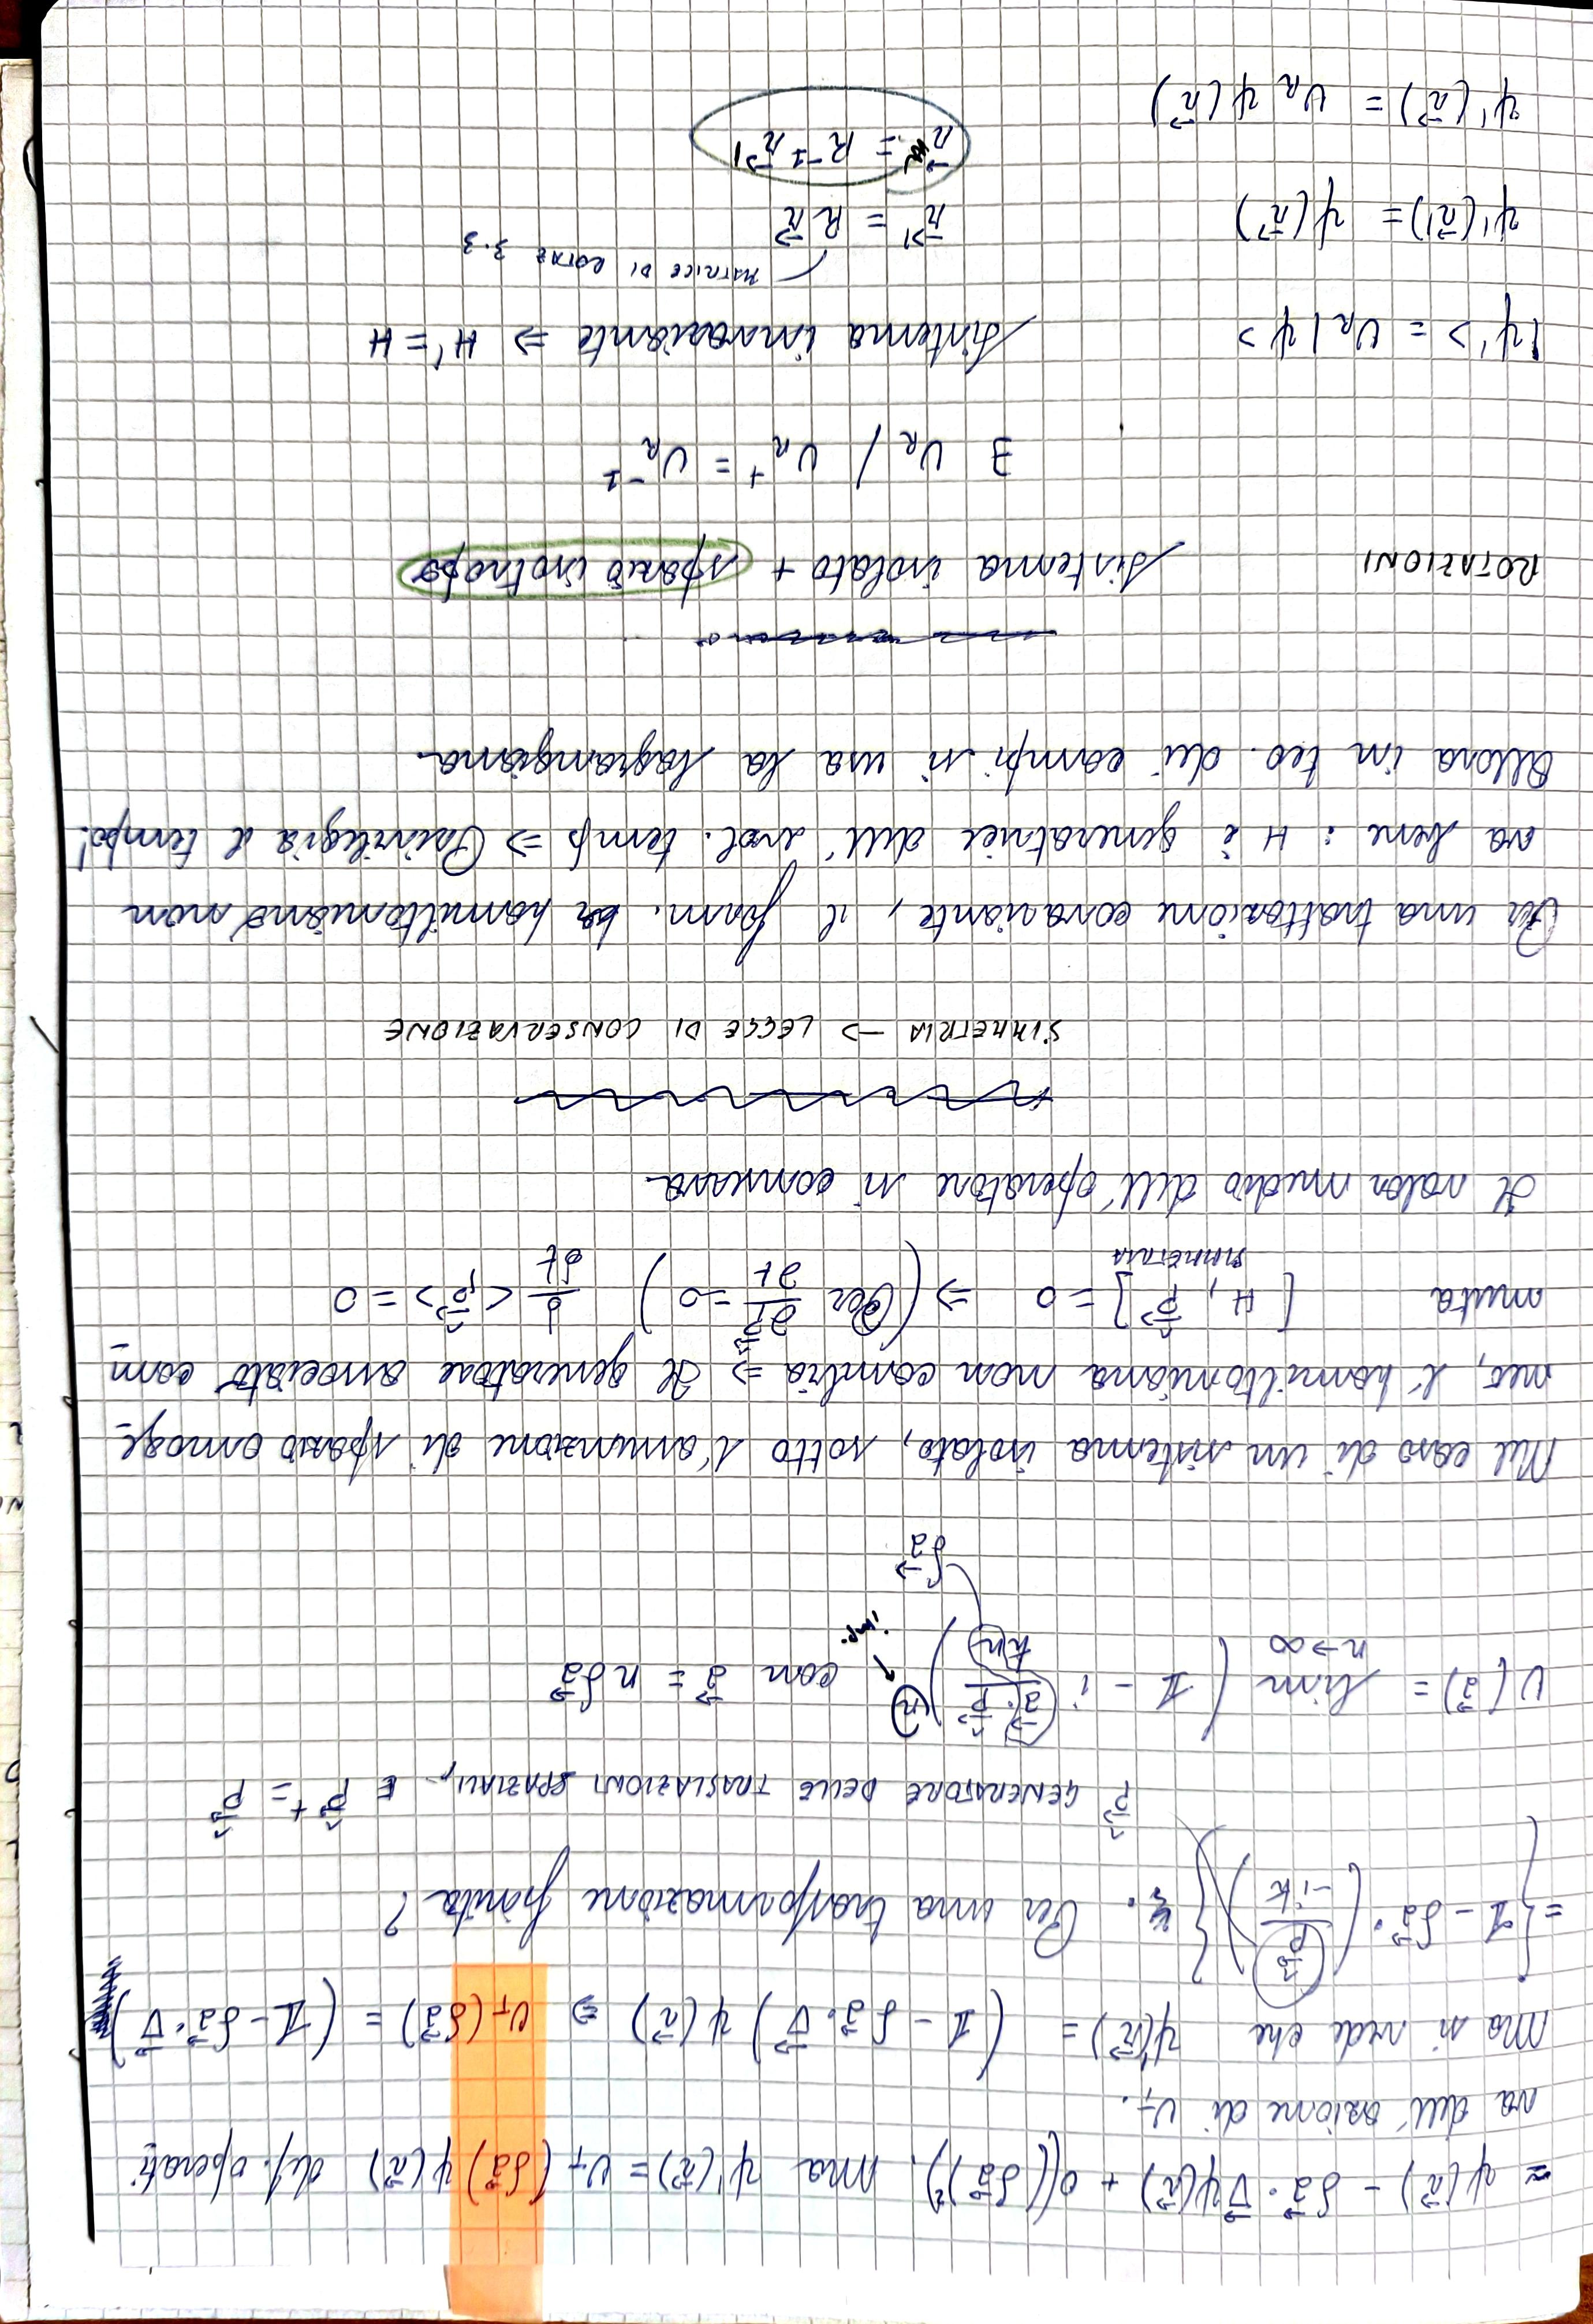 ≈ ψ(r⃗) - δa⃗·∇⃗ψ(r⃗) + O((δa⃗)²). Ma ψ'(r⃗) = U_T(δa⃗)ψ(r⃗) def. operati-
va dell'azione di U_T.
Ma si vede che ψ'(r⃗) = (𝟙 - δa⃗·∇⃗)ψ(r⃗) ⇒ U_T(δa⃗) = (𝟙 - δa⃗·∇⃗)
= {𝟙 - δa⃗·(p̂⃗/-iħ)}. Per una trasformazione finita?
p̂⃗ GENERATORE DELLE TRASLAZIONI SPAZIALI, E p̂⃗⁺ = p̂⃗
U(a⃗) = lim n→∞ (𝟙 - i a⃗·p̂⃗/ħn)ⁿ con a⃗ = nδa⃗
imp.
δa⃗
Nel caso di un sistema isolato, sotto l'assunzione di spazio omoge-
neo, l'hamiltoniana non cambia ⇒ Il generatore associato com-
muta [H, p̂⃗] = 0 ⇒ (Per ∂p̂⃗/∂t = 0) d/dt <p̂⃗> = 0
SIMMETRIA
Il valor medio dell'operatore si conserva.
SIMMETRIA → LEGGE DI CONSERVAZIONE
Per una trattazione covariante, il form. hamiltoniano non
va bene: H è generatrice dell'evol. temp ⇒ Privilegia il tempo!
Allora in teo. dei campi si usa la lagrangiana.
ROTAZIONI Sistema isolato + spazio isotropo
∃ U_R / U_R⁺ = U_R⁻¹
|ψ'> = U_R|ψ> Sistema invariante ⇒ H' = H
MATRICE DI ROTAZ 3·3
ψ'(r⃗') = ψ(r⃗) r⃗' = R r⃗
r⃗ = R⁻¹ r⃗'
ψ'(r⃗) = U_R ψ(r⃗)